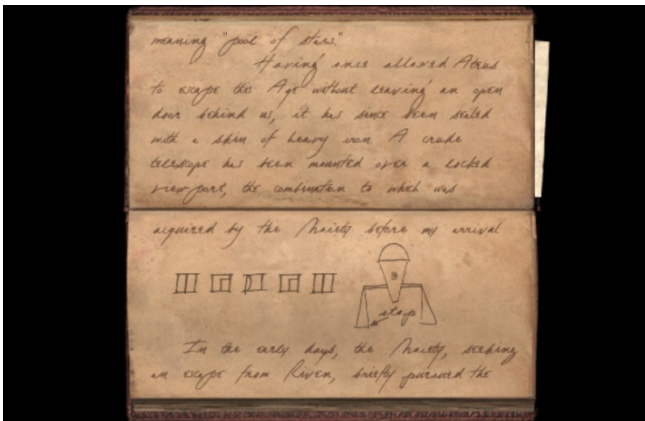 meaning "pool of stars."
Having once allowed Atrus
to escape this Age without leaving an open
door behind us, it has since been sealed
with a skin of heavy iron A crude
telescope has been mounted over a locked
viewport, the combination to which was
acquired by the Moiety before my arrival
stop
In the early days, the Moiety, seeking
an escape from Riven, briefly pursued the